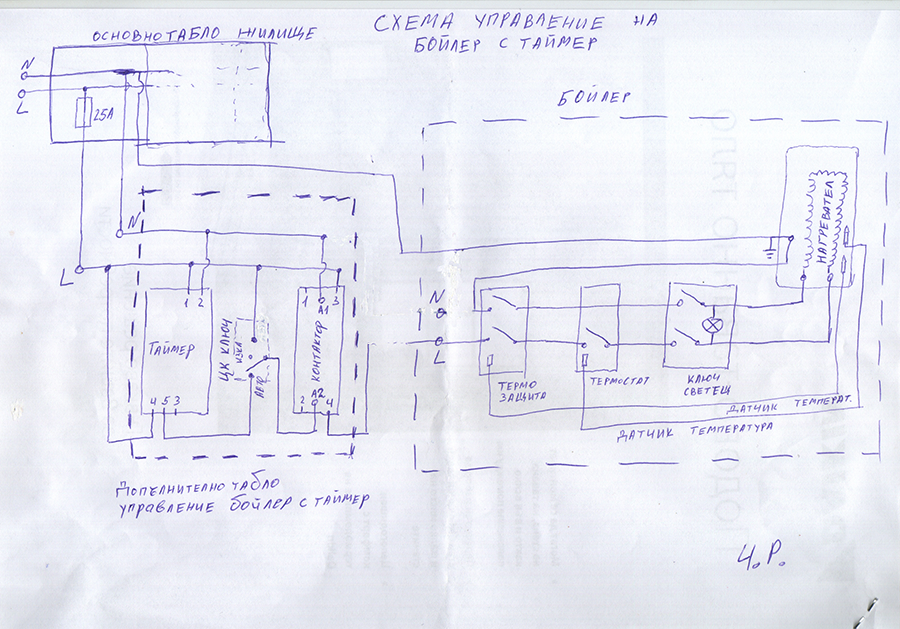 СХЕМА УПРАВЛЕНИЕ НА
БОЙЛЕР С ТАЙМЕР
ОСНОВНО ТАБЛО ЖИЛИЩЕ
N
L
25А
БОЙЛЕР
N
L
1 2
ТАЙМЕР
4 5 3
ЦК КЛЮЧ
АВТ
1 3
А1
КОНТАКТОР
А2
2 4
НАГРЕВАТЕЛ
N
L
ТЕРМО
ЗАЩИТА
ТЕРМОСТАТ
КЛЮЧ
СВЕТЕЩ
ДАТЧИК ТЕМПЕРАТ.
ДАТЧИК ТЕМПЕРАТУРА
ДОПЪЛНИТЕЛНО ТАБЛО
УПРАВЛЕНИЕ БОЙЛЕР С ТАЙМЕР
Ч.Р.